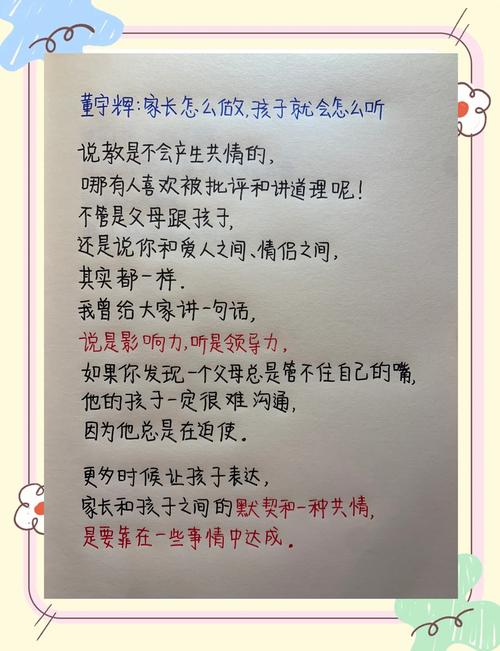 董宇辉:家长怎么做,孩子就会怎么听
说教是不会产生共情的,
哪有人喜欢被批评和讲道理呢!
不管是父母跟孩子,
还是说你和爱人之间、情侣之间,
其实都一样.
我曾给大家讲一句话,
说是影响力,听是领导力,
如果你发现一个父母总是管不住自己的嘴,
他的孩子一定很难沟通,
因为他总是在迫使。
更多时候让孩子表达,
家长和孩子之间的默契和一种共情,
是要靠在一些事情中达成.